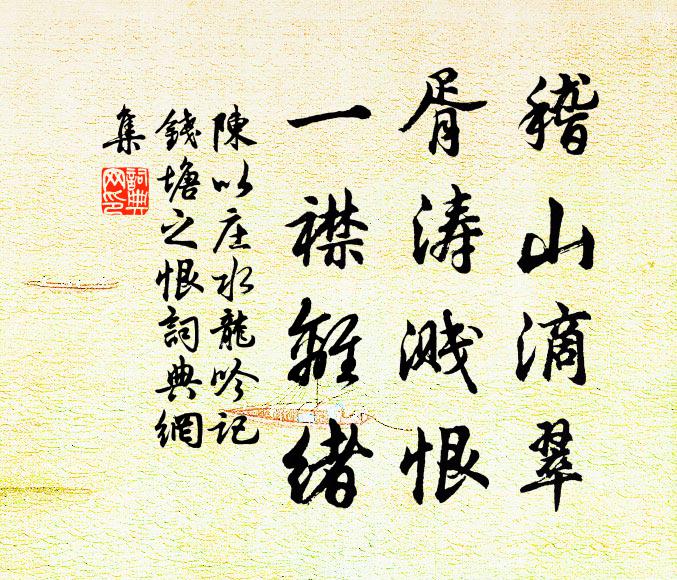 稽山滴翠
胥涛溅恨
一襟離緒
陳以庄水龍吟記
錢塘之恨詞典網
集
詞典
网印